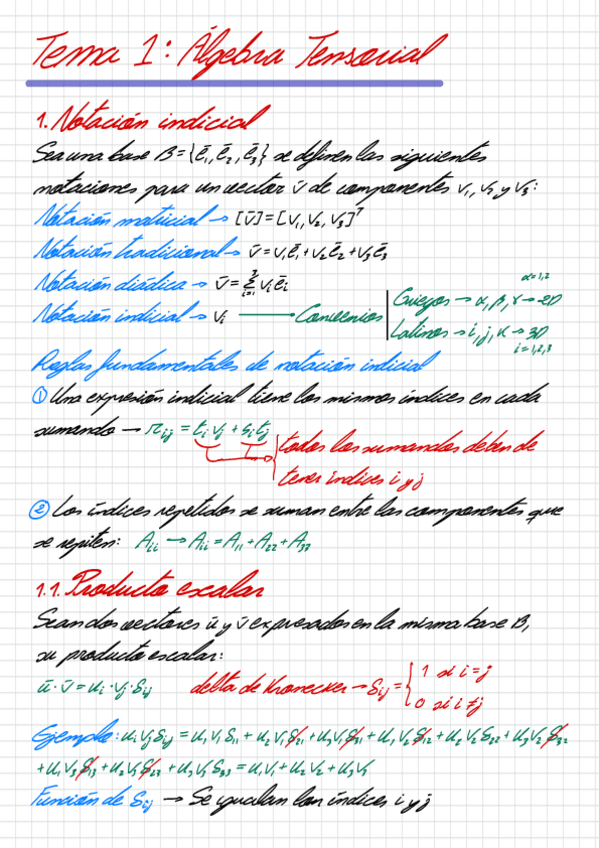 Tema 1: Álgebra Tensorial
1. Notación indicial
Sea una base B = {ē₁, ē₂, ē₃} se definen las siguientes
notaciones para un vector v̄ de componentes v₁, v₂ y v₃:
Notación matricial → [v̄] = [v₁, v₂, v₃]ᵀ
Notación tradicional → v̄ = v₁ē₁ + v₂ē₂ + v₃ē₃
Notación diádica → v̄ = Σ³ᵢ₌₁ vᵢēᵢ
Notación indicial → vᵢ → Convenios
α=1,2
Griegos → α, β, γ → 2D
Latinos → i, j, k → 3D
i=1,2,3
Reglas fundamentales de notación indicial
① Una expresión indicial tiene los mismos índices en cada
sumando → rᵢⱼ = tᵢvⱼ + sᵢtⱼ
todos los sumandos deben de
tener índices i y j
② Los índices repetidos se suman entre las componentes que
se repiten: Aᵢᵢ → Aᵢᵢ = A₁₁ + A₂₂ + A₃₃
1.1. Producto escalar
Sean dos vectores ū y v̄ expresados en la misma base B,
su producto escalar:
ū · v̄ = uᵢ · vⱼ · δᵢⱼ delta de Kronecker → δᵢⱼ = { 1 si i = j
0 si i ≠ j
Ejemplo: uᵢvⱼδᵢⱼ = u₁v₁δ₁₁ + u₂v₁δ₂₁ + u₃v₁δ₃₁ + u₁v₂δ₁₂ + u₂v₂δ₂₂ + u₃v₂δ₃₂
+ u₁v₃δ₁₃ + u₂v₃δ₂₃ + u₃v₃δ₃₃ = u₁v₁ + u₂v₂ + u₃v₃
Función de δᵢⱼ → Se igualan los índices i y j